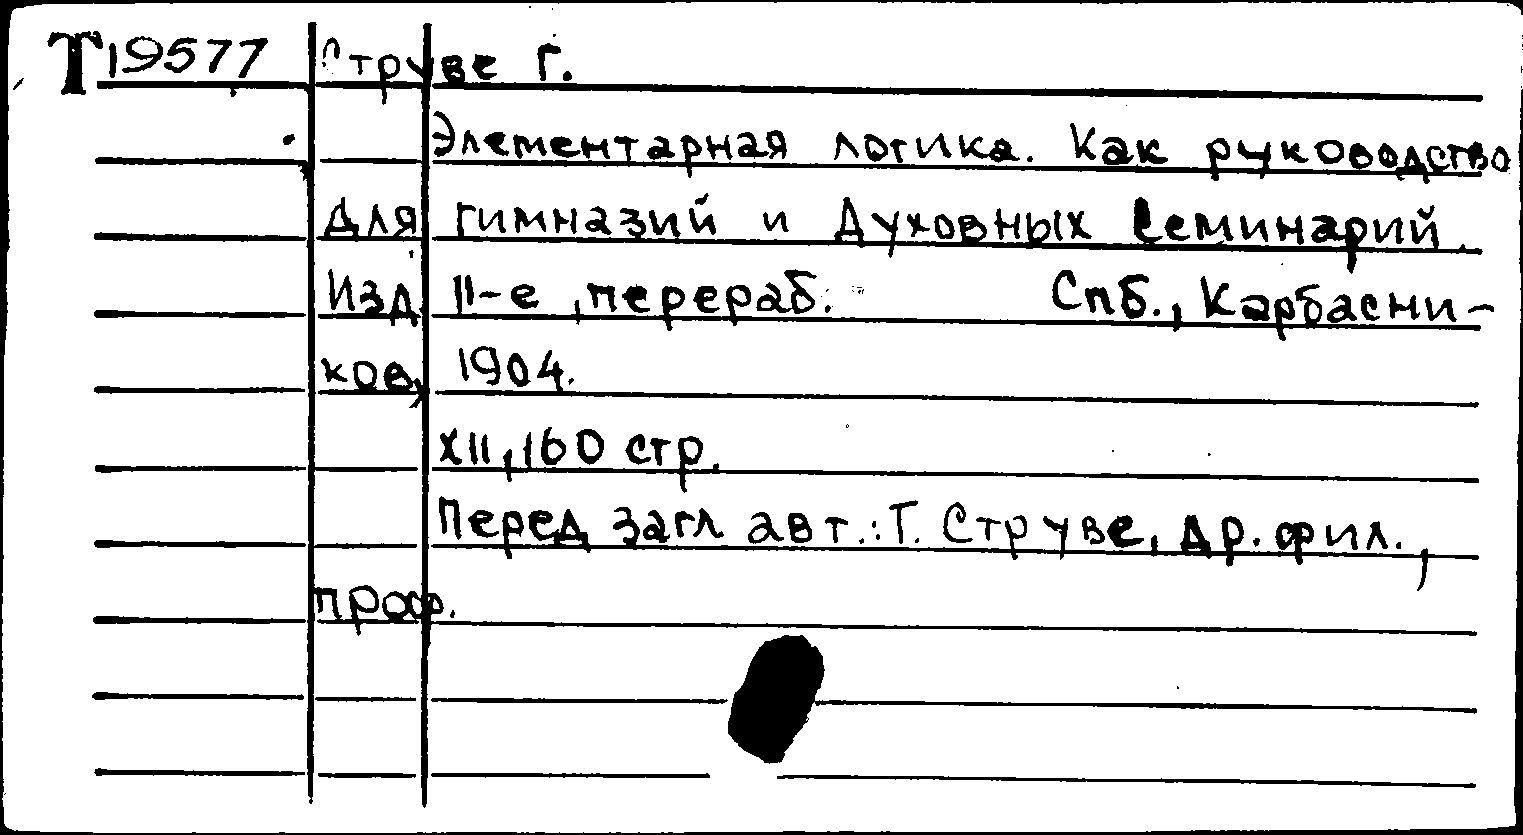 Т19577 Струве Г.
Элементарная логика. Как руководство
для гимназий и Духовных Семинарий.
Изд. II-е, перераб. Спб., Карбасни-
ков, 1904.
XII, 160 стр.
Перед загл авт.: Г. Струве, др. фил.,
проф.